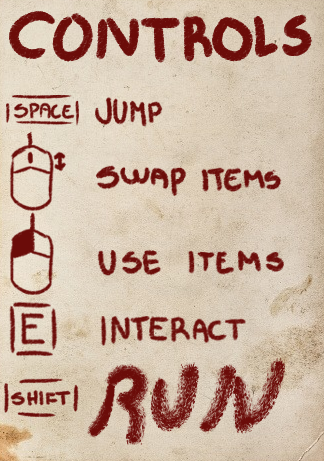 CONTROLS
SPACE JUMP
SWAP ITEMS
USE ITEMS
E INTERACT
SHIFT RUN